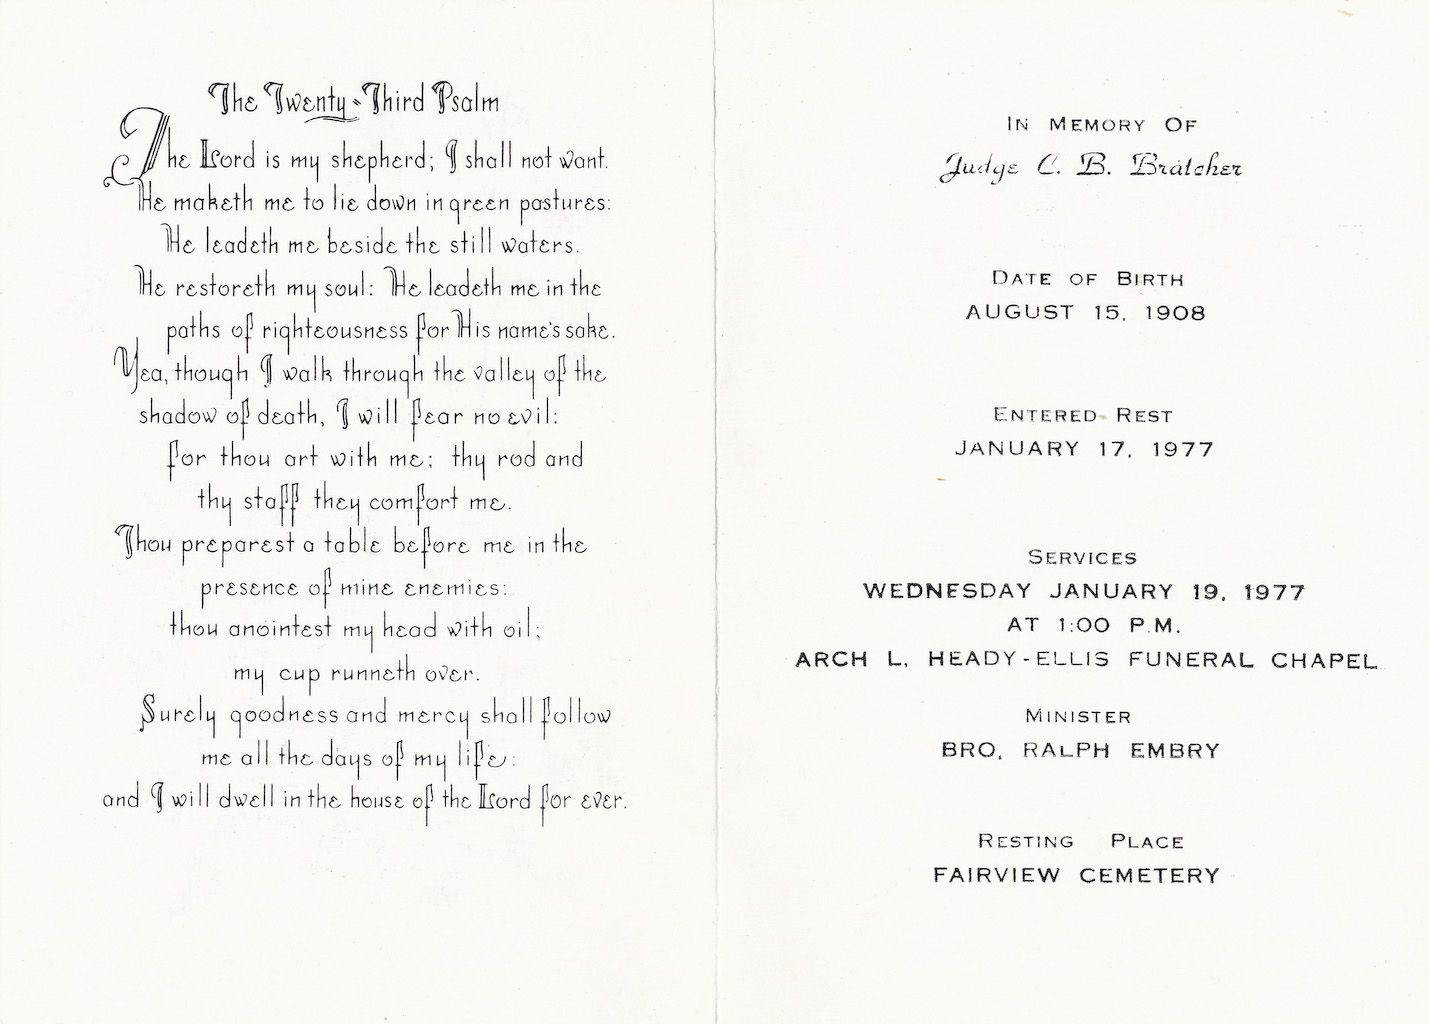 The Twenty-Third Psalm
The Lord is my shepherd; I shall not want.
He maketh me to lie down in green pastures:
He leadeth me beside the still waters.
He restoreth my soul: He leadeth me in the
paths of righteousness for His name's sake.
Yea, though I walk through the valley of the
shadow of death, I will fear no evil:
for thou art with me; thy rod and
thy staff they comfort me.
Thou preparest a table before me in the
presence of mine enemies:
thou anointest my head with oil;
my cup runneth over.
Surely goodness and mercy shall follow
me all the days of my life:
and I will dwell in the house of the Lord for ever.
In Memory Of
Judge C. B. Bratcher
Date of Birth
AUGUST 15, 1908
Entered Rest
JANUARY 17, 1977
Services
WEDNESDAY JANUARY 19, 1977
AT 1:00 P.M.
ARCH L. HEADY-ELLIS FUNERAL CHAPEL
Minister
BRO. RALPH EMBRY
Resting Place
FAIRVIEW CEMETERY